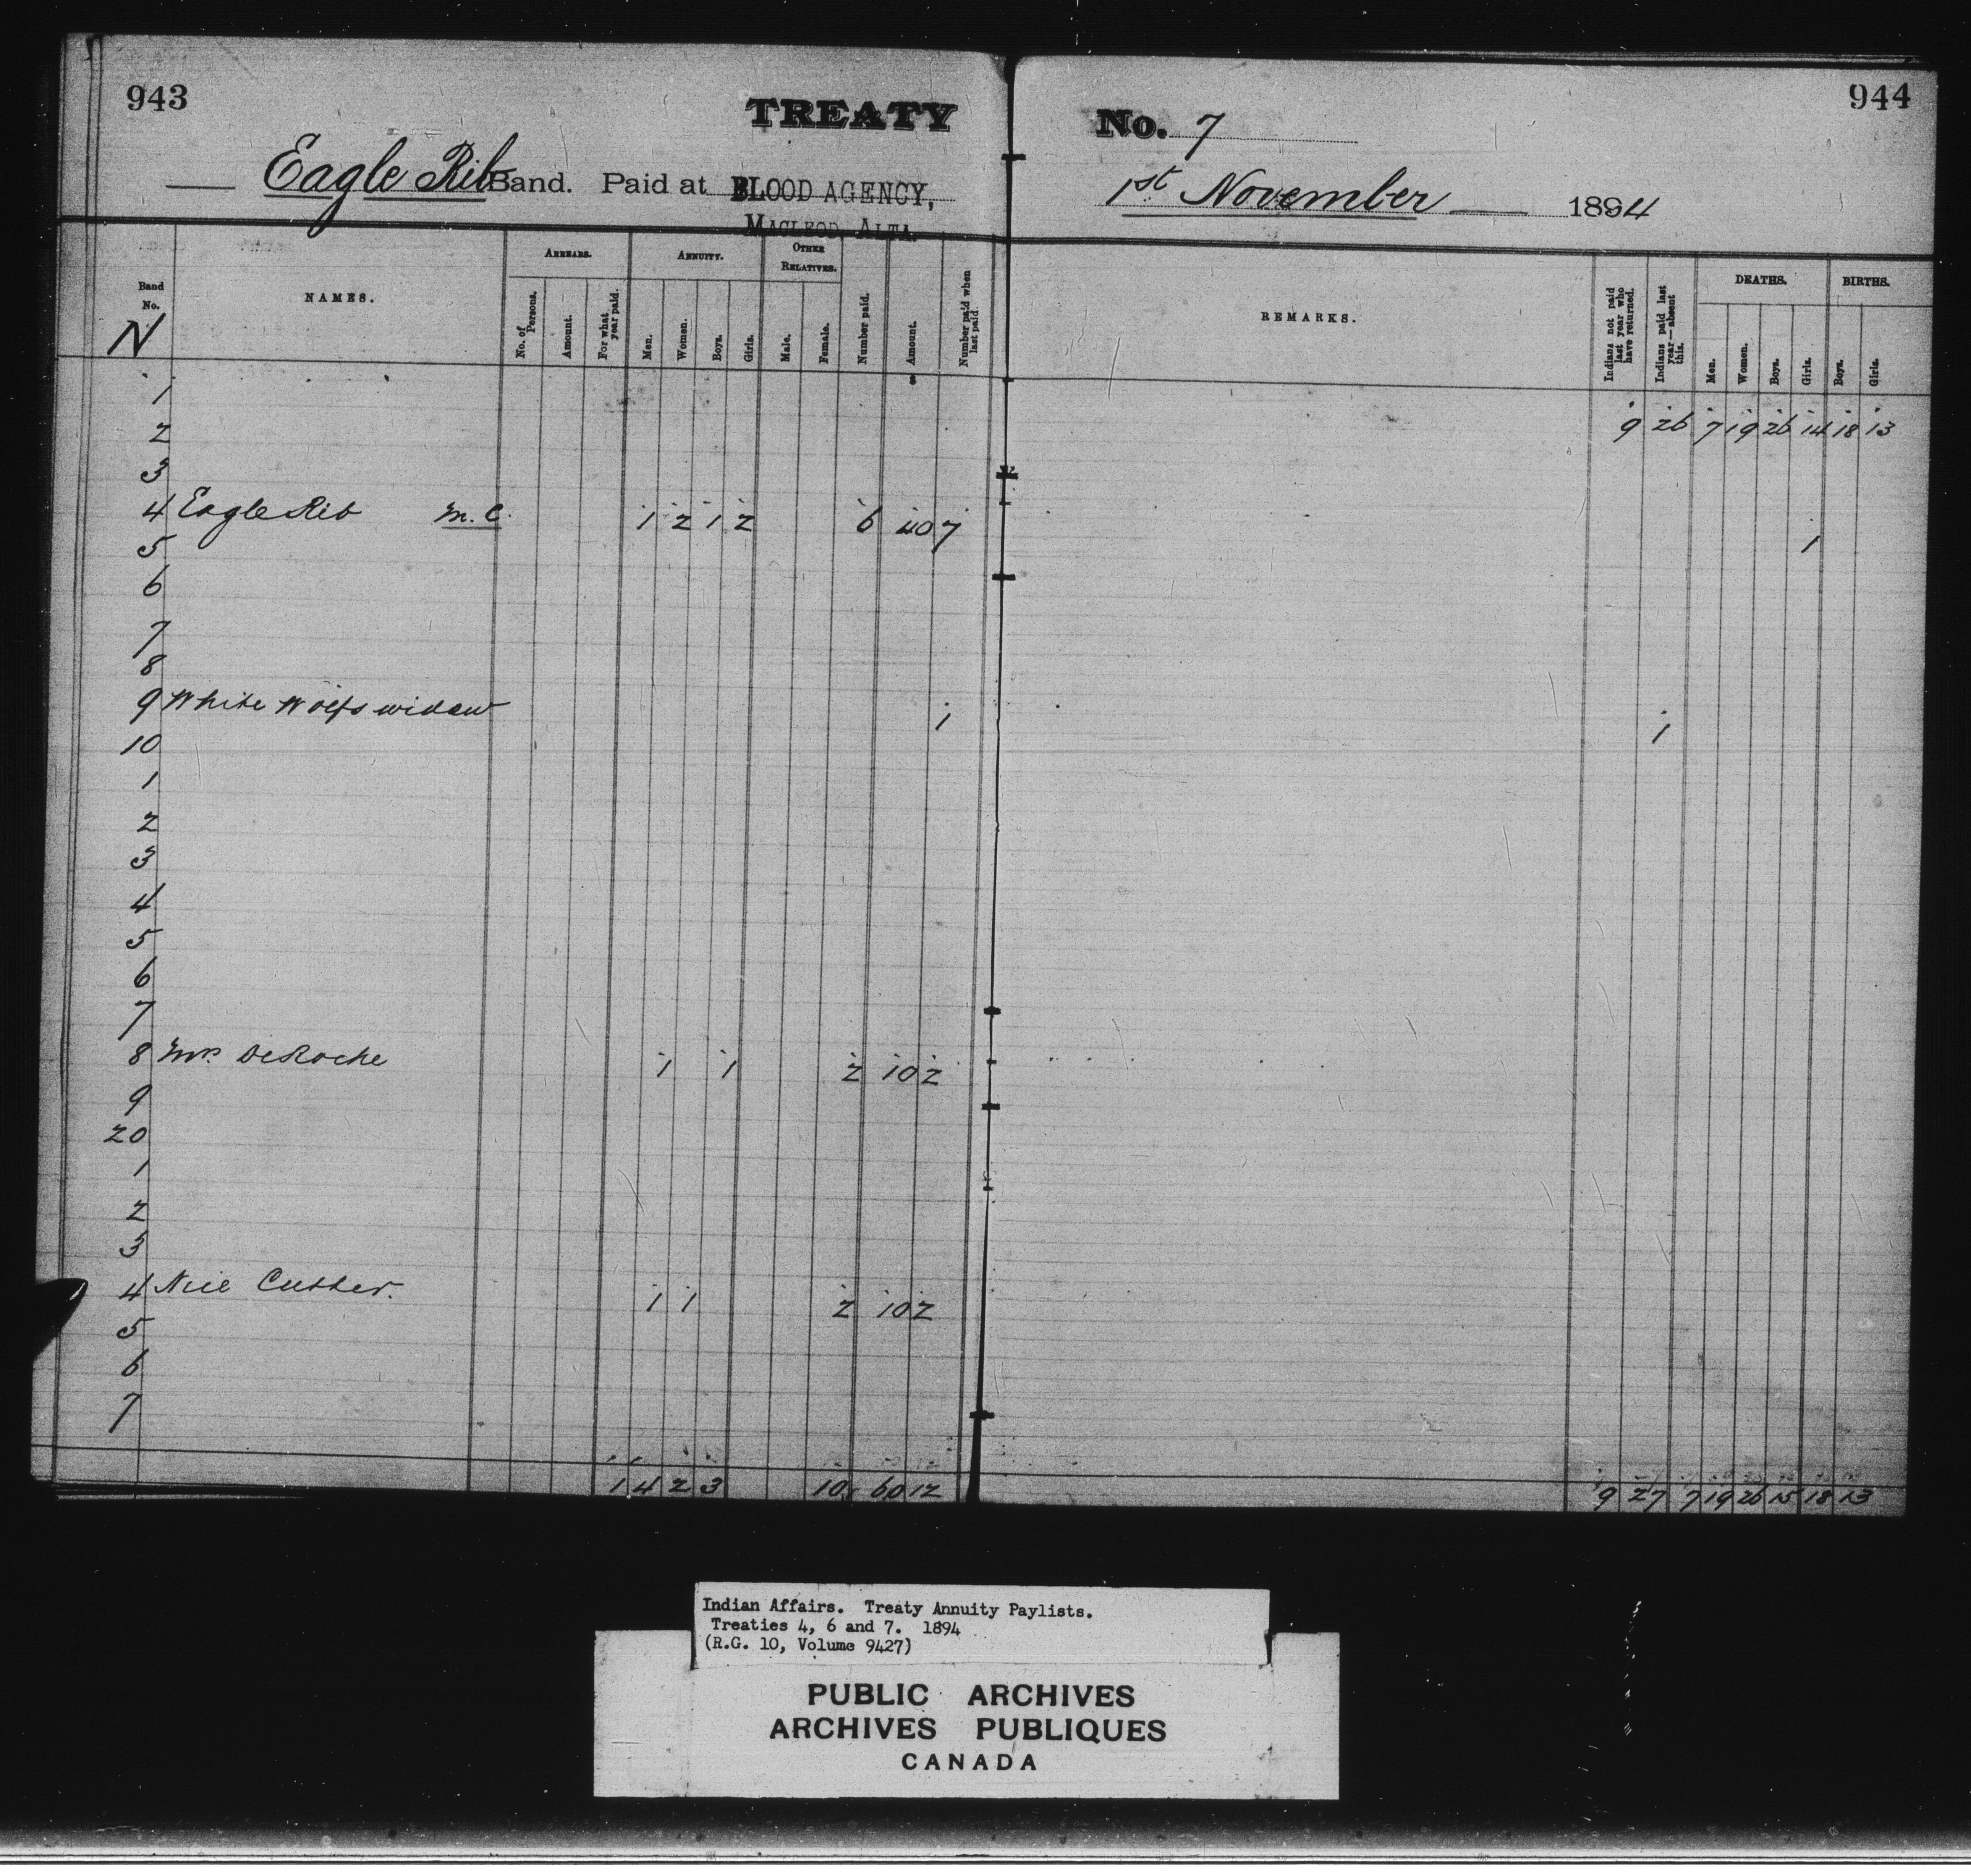 943
TREATY
Eagle Rib Band. Paid at BLOOD AGENCY,
MACLEOD, ALTA.
No. 7
944
1st November 1894
Band No. NAMES. ARREARS. ANNUITY. OTHER RELATIVES. Number paid. Amount. Number paid when last paid.
No. of Persons. Amount. For what year paid. Men. Women. Boys. Girls. Male. Female.
REMARKS. Indians not paid last year who have returned. Indians paid last year—absent this. DEATHS. BIRTHS.
Men. Women. Boys. Girls. Boys. Girls.
N
$
1
2 9 26 7 19 26 14 18 13
3
4 Eagle Rib M.C. 1 2 1 2 6 40 7
5 1
6
7
8
9 White Wolfs widow 1 1
10
1
2
3
4
5
6
7
8 Mrs DeRoche 1 1 2 10 2
9
20
1
2
3
4 Cutter. 1 1 2 10 2
5
6
7
1 4 2 3 10 60 12 9 27 7 19 26 15 18 13
Indian Affairs. Treaty Annuity Paylists.
Treaties 4, 6 and 7. 1894
(R.G. 10, Volume 9427)
PUBLIC ARCHIVES
ARCHIVES PUBLIQUES
CANADA